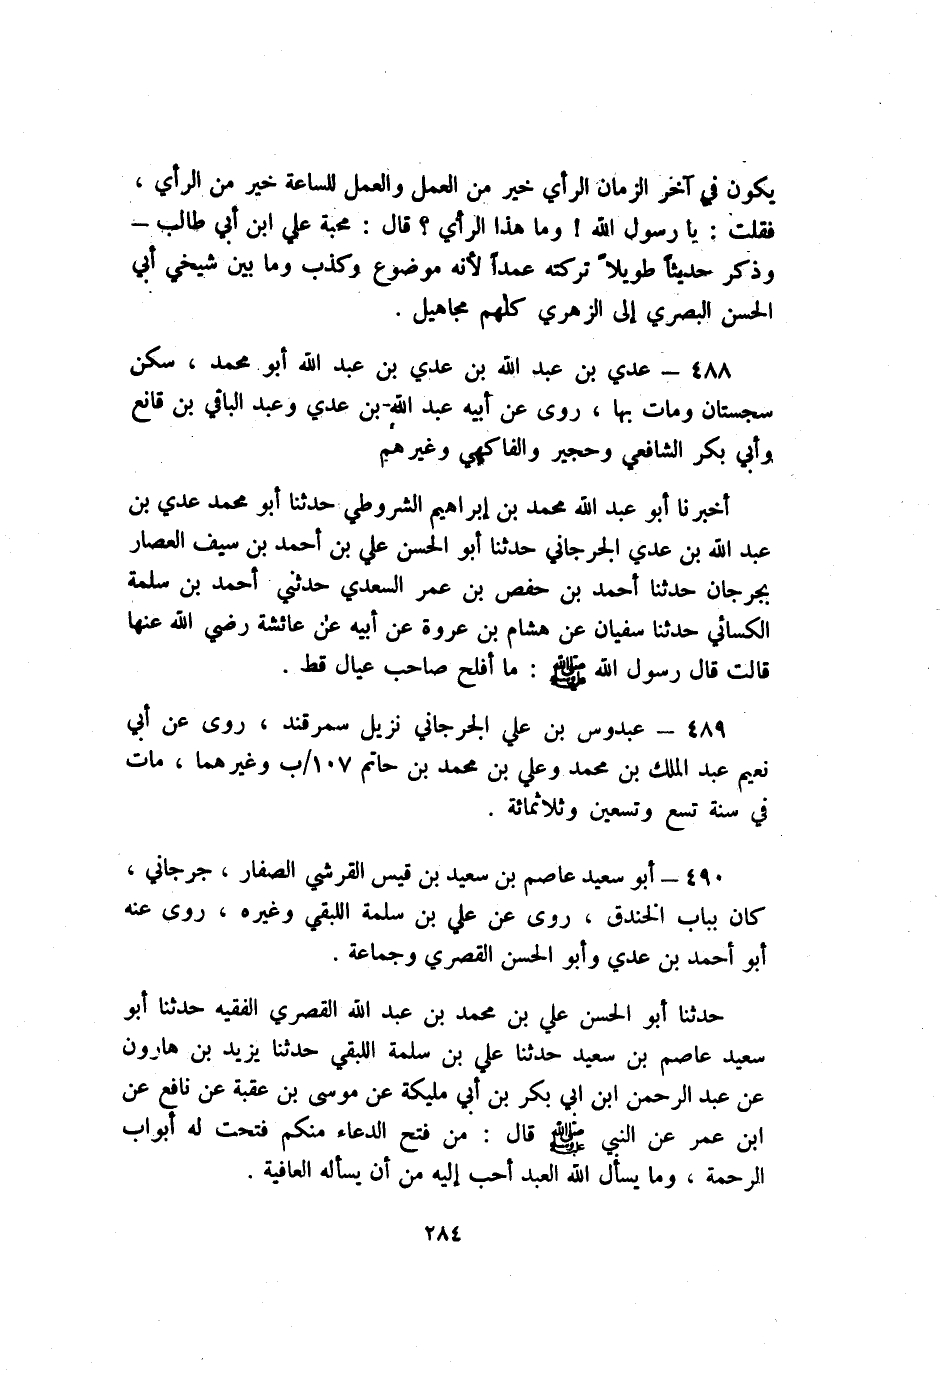 يكون في آخر الزمان الرأي خير من العمل والعمل للساعة خير من الرأي ،
فقلت : يا رسول الله ! وما هذا الرأي ؟ قال : محبة علي ابن أبي طالب –
وذكر حديثاً طويلاً تركته عمداً لأنه موضوع وكذب وما بين شيخي أبي
الحسن البصري إلى الزهري كلهم مجاهيل .
٤٨٨ – عدي بن عبد الله بن عدي بن عبد الله أبو محمد ، سكن
سجستان ومات بها ، روى عن أبيه عبد الله بن عدي وعبد الباقي بن قانع
وأبي بكر الشافعي وحجير والفاكهي وغيرهم
أخبرنا أبو عبد الله محمد بن إبراهيم الشروطي حدثنا أبو محمد عدي بن
عبد الله بن عدي الجرجاني حدثنا أبو الحسن علي بن أحمد بن سيف العصار
بجرجان حدثنا أحمد بن حفص بن عمر السعدي حدثني أحمد بن سلمة
الكسائي حدثنا سفيان عن هشام بن عروة عن أبيه عن عائشة رضي الله عنها
قالت قال رسول الله ﷺ : ما أفلح صاحب عيال قط .
٤٨٩ – عبدوس بن علي الجرجاني نزيل سمرقند ، روى عن أبي
نعيم عبد الملك بن محمد وعلي بن محمد بن حاتم ١٠٧/ب وغيرهما ، مات
في سنة تسع وتسعين وثلاثمائة .
٤٩٠ – أبو سعيد عاصم بن سعيد بن قيس القرشي الصفار ، جرجاني ،
كان بباب الخندق ، روى عن علي بن سلمة اللبقي وغيره ، روى عنه
أبو أحمد بن عدي وأبو الحسن القصري وجماعة .
حدثنا أبو الحسن علي بن محمد بن عبد الله القصري الفقيه حدثنا أبو
سعيد عاصم بن سعيد حدثنا علي بن سلمة اللبقي حدثنا يزيد بن هارون
عن عبد الرحمن ابن ابي بكر بن أبي مليكة عن موسى بن عقبة عن نافع عن
ابن عمر عن النبي ﷺ قال : من فتح الدعاء منكم فتحت له أبواب
الرحمة ، وما يسأل الله العبد أحب إليه من أن يسأله العافية .
٢٨٤